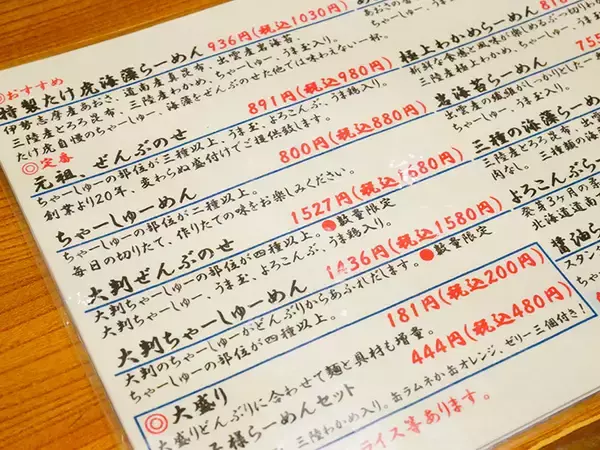 ◎おすすめ
特製たけ虎海藻らーめん 936円(税込1030円)
伊勢志摩産あおさ、道南産真昆布、出雲産岩海苔、
三陸産とろろ昆布、三陸産わかめ、ちゃーしゅー、うま玉入り。
たけ虎自慢のちゃーしゅー、海藻とぜんぶのせた他では味わえない一杯。
◎定番
元祖、ぜんぶのせ 891円(税込980円)
ちゃーしゅーの部位が三種以上。うま玉、よろこんぶ、うま鶏入り。
創業より20年、変わらぬ盛付けでご提供致します。
ちゃーしゅーめん 800円(税込880円)
ちゃーしゅーの部位が二種以上。
毎日の切りたて、作りたての味をお楽しみください。
大判ぜんぶのせ 1527円(税込1680円)
●数量限定
大判ちゃーしゅーの部位が四種以上。
大判ちゃーしゅー、うま玉、よろこんぶ、うま鶏入り。
大判ちゃーしゅーめん 1436円(税込1580円)
●数量限定
大判のちゃーしゅーがどんぶりからあふれだします。
ちゃーしゅーの部位が四種以上。
◎大盛り 181円(税込200円)
大盛りどんぶりに合わせて麺と具材も増量。
子様らーめんセット 444円(税込480円)
三陸わかめ入り。缶ラムネか缶オレンジ、ゼリー三個付き!
ライス等あります。
あおさの香
ちゃーしゅー、うま玉
極上わかめらーめん 816
新鮮な食感と風味が楽しめるぶつ切り
三陸産極上わかめ、ちゃーしゅー、うま玉入
岩海苔らーめん 755
出雲産の繊維がしっかりとした
ちゃーしゅー、うま玉入り。
三種の海藻らーめ
三陸産とろろ昆布、
肉なし。三種類の海
よろこんぶらー
発芽3ヶ月の
北海道道南
醤油ら
スタン